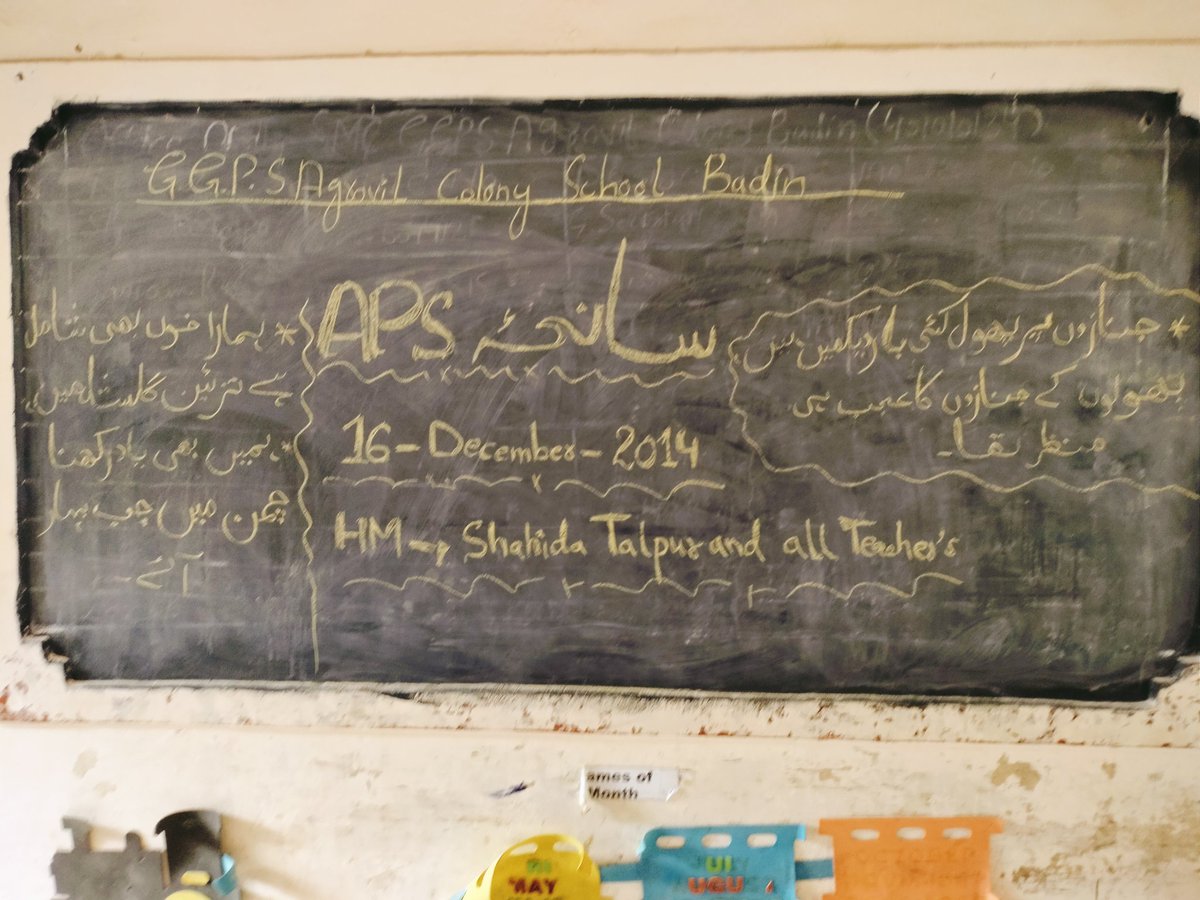 G.G.P.S Agrovil Colony School Badin
سانحۂ APS
16-December-2014
HM → Shahida Talpur and all Teacher's
* جنازوں پر پھول کئی بار دیکھیں ہیں
پھولوں کے جنازوں کا عجب ہی
منظر تھا۔
* ہمارا خوں بھی شامل
ہے تزئین گلستاں میں
* ہمیں بھی یاد رکھنا
چمن میں جب بہار
آئے۔
ames of
Month
MAY